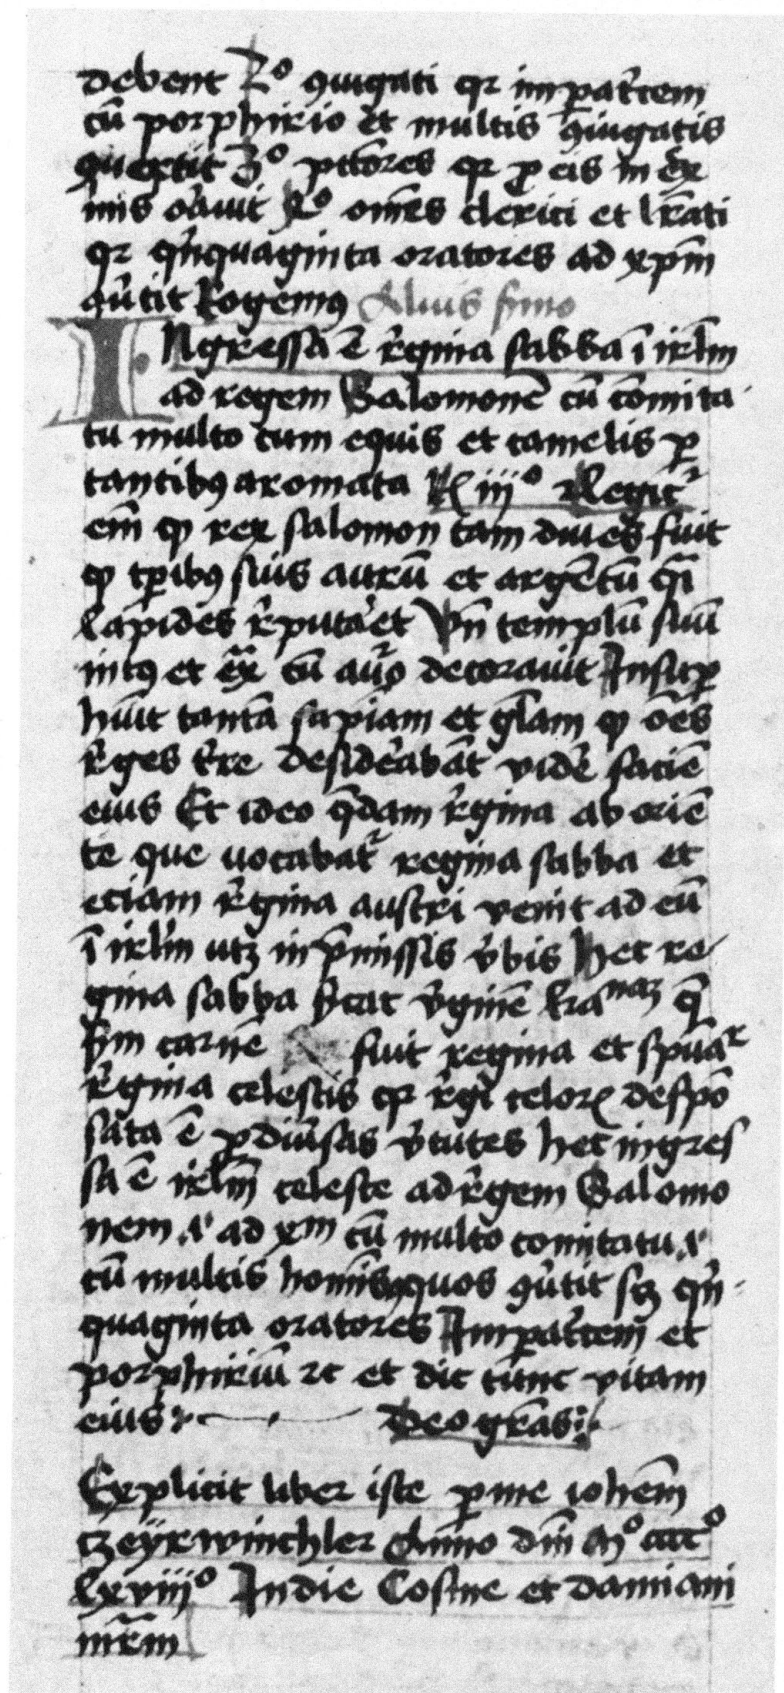 debent 2º ꝯiugati qr impat'cem
cū porphirio et multis ꝯiugatis
ꝯuertit 3º pctōres qr ꝑ eis in ext'
mis orauit 4º om̄es clerici et lr̄ati
qr qn̄quaginta oratores ad xp̄m
ꝯu'tit Rogemꝰ Alius ſermo
INgreſſa ē r'gina ſabba ī irl'm
ad regem Salomonē cū comita
tu multo cum equis et camelis por
tantibꝰ aromata R iiiº Legit'
em̄ ꝙ rex ſalomon tam diues fuit
ꝙ tp̄ibꝰ ſuis aurū et argētū q̄ſi
lapides r'puta'et Vn̄ templū ſuū
intꝰ et ext̄ cū auro decorauit Inſuꝑ
hūit tantā ſapīam et gl̄am ꝙ ōes
r'ges t're deſiderabāt vide' faciē
eius Et ideo q̄dam r'gina ab oriē
te que uocabat' regina ſabba et
eciam r'gina auſtri venit ad eū
ī irl'm utꝫ in p̄miſſis v'bis Hec re
gina ſabba ſignat v'ginē kr̄aꝫ q̄
ſm̄ carnē fuit regina et ſpūa'r
r'gina celeſtis qr r'gi celoꝝ deſpō
ſata ē ꝑ diu'ſas v'tutes hec ingreſ
ſa ē irl'm celeſte ad r'gem Salomo
nem .i. ad xm̄ cū multo comitatu .i.
cū multis homīs quos ꝯu'tit ſcꝫ qn̄
quaginta oratores Impat'cem et
porphiriū ⁊c et dic tunc vitam
eius Deo grās
Explicit liber iſte ꝑ me iohēm
tzeyrwinchler Anno dm̄ mº cccº
lxviijº In die Coſme et damiani
mr̄m